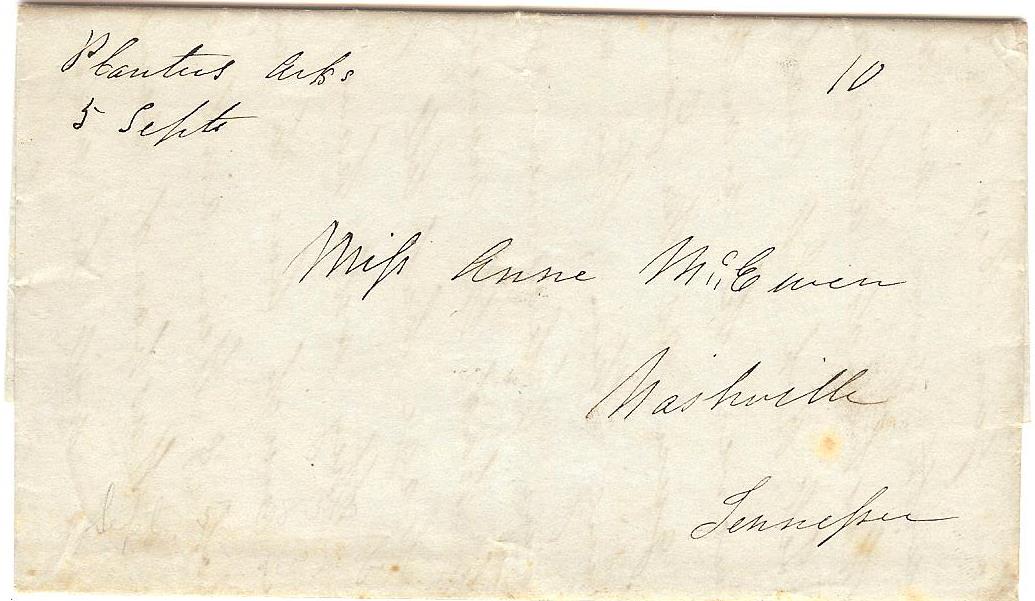 Planters Arks
10
5 Septr
Miss Anne McEwen
Nashville
Tennessee